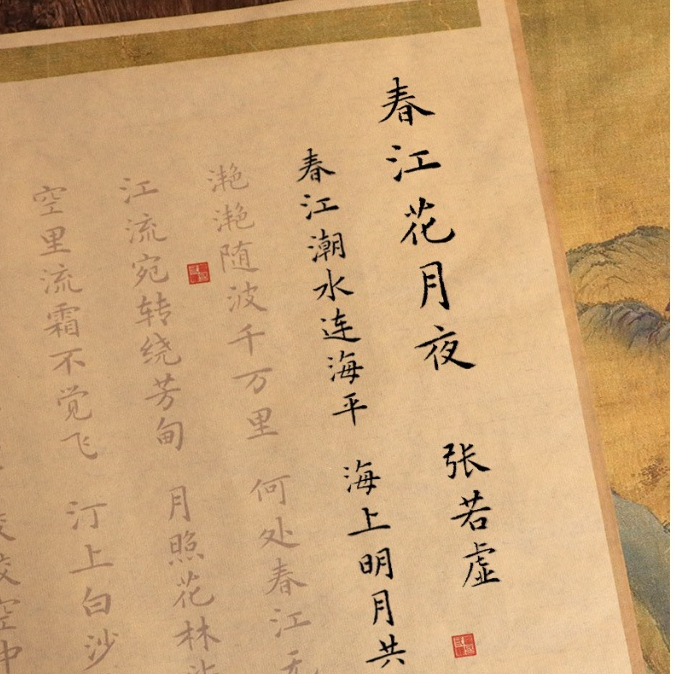 春江花月夜 张若虚
春江潮水连海平 海上明月共
滟滟随波千万里 何处春江无
江流宛转绕芳甸 月照花林
空里流霜不觉飞 汀上白沙
皎空中